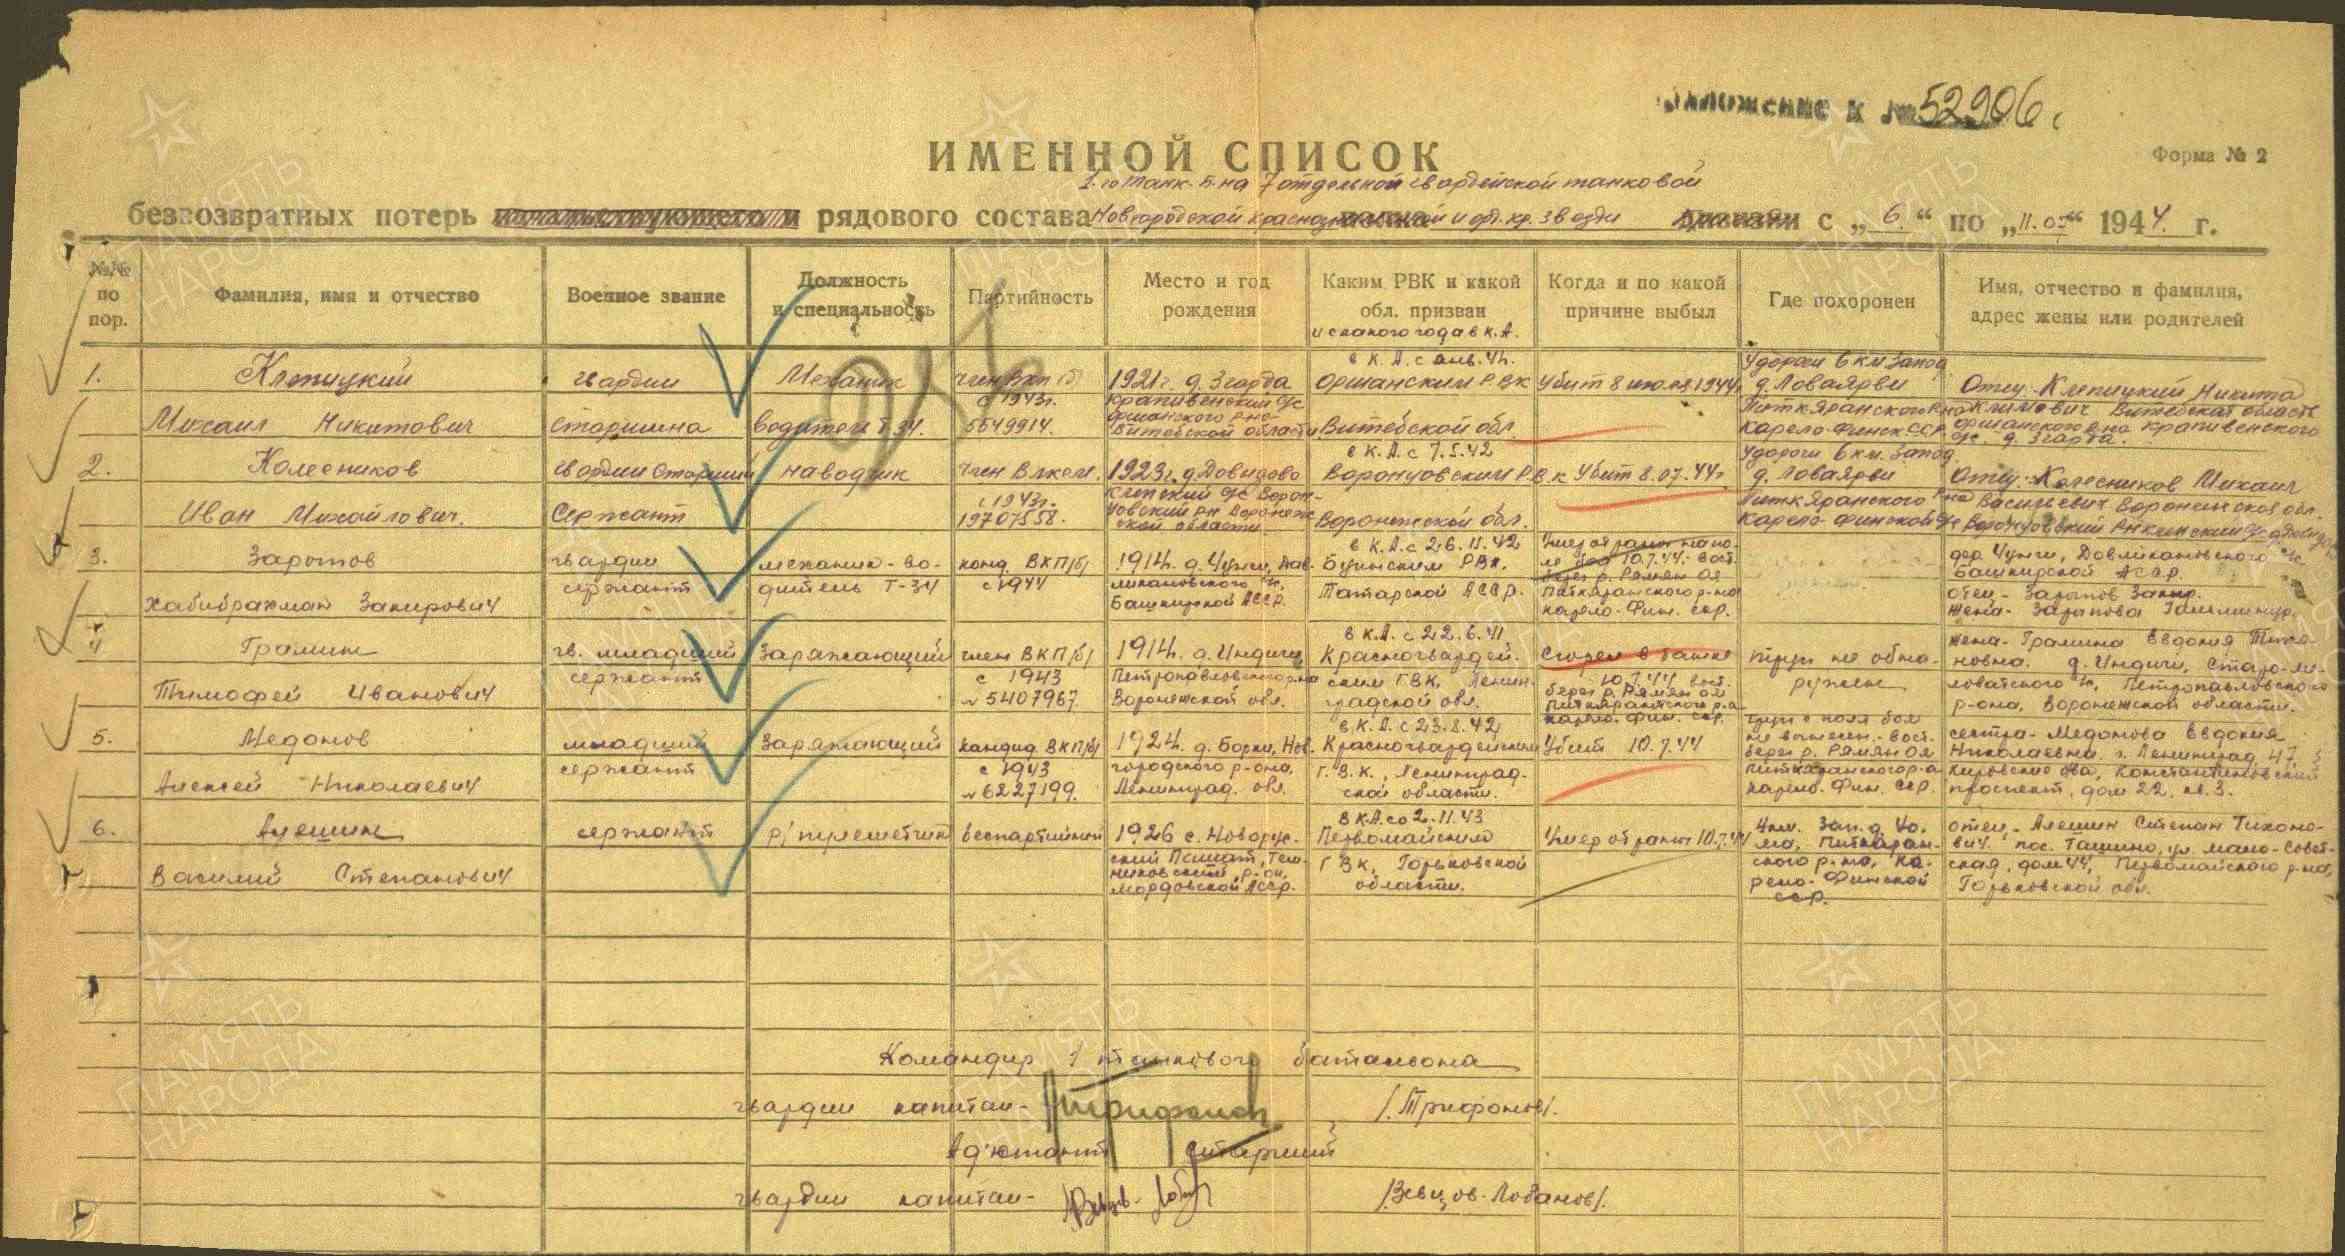 Приложение к № 52906.
ИМЕННОЙ СПИСОК
Форма № 2
1-го танк. б-на 7 отдельной гвардейской танковой
безвозвратных потерь начальствующего и рядового состава Новгородской краснознаменной и орд. кр. звезды с „6.“ по „11.07“ 1944 г.
№№ по пор.
Фамилия, имя и отчество
Военное звание
Должность и специальность
Партийность
Место и год рождения
Каким РВК и какой обл. призван
и с какого года в К.А.
Когда и по какой причине выбыл
Где похоронен
Имя, отчество и фамилия, адрес жены или родителей
1.
Клепицкий
Михаил Никитович
гвардии
старшина
Механик
водитель Т-34.
член ВКП(б)
с 1943г.
5649914.
1921г. д. Згарда
Крапивенский с/с
Оршанского р-на
Витебской области
в К.А. с янв. 42.
Оршанским РВК
Витебской обл.
Убит 8 июля 1944г
У дороги 6 км. Запад.
д. Ловаярви
Питкярантского р-на
Карело-Финск. ССР.
Отец: Клепицкий Никита
Климович Витебская область
Оршанского р-на Крапивенского
с/с. д. Згарда.
2.
Колесников
Иван Михайлович.
гвардии старший
Сержант
наводчик
член ВЛКСМ.
с 1943г.
19707558.
1923г. д. Довидово
в К.А. с 7.5.42
Воронцовским РВК
Воронежской обл.
Убит 8.07.44г
У дороги 6 км. Запад.
д. Ловаярви
Питкяранского р-на
Карело-Финской
Отец: Колесников Михаил
Васильевич Воронежская обл.
3.
Зарипов
Хабибрахман Закирович
гвардии
сержант
механик-во-
дитель Т-34
канд. ВКП/б/
с 1944
1914. д. Чунги, Дав-
лекановского с/с,
Башкирской АССР.
в К.А. с 26.11.42
Буинским РВК.
Татарской АССР.
10.7.44. вост.
берег р. Рямян оя
Питкяранского р-на
Карело-Фин. сср.
дер. Чунги, Довликановского с/с
Башкирской АССР.
отец - Зарипов Закир.
жена - Зарипова
4
Гралин
Тимофей Иванович
гв. младший
сержант
Заряжающий
член ВКП/б/
с 1943
№ 5407967.
1914. д. Индичи
Петропавловского р-на
Воронежской обл.
в К.А. с 22.6.41
Красногвардей-
ским ГВК, Ленин-
градской обл.
Сгорел в танке
10.7.44 вост.
берег р. Рямян оя
Питкярантского р-на
Карело-Фин. сср.
труп не обна-
ружен
жена - Гралина Евдокия Тихо-
новна. д. Индичи, Старо-ме-
ловатского с/с, Петропавловского
р-она, Воронежской области.
5.
Медонов
Алексей Николаевич
младший
сержант
Заряжающий
кандид. ВКП/б/
с 1943
№ 6227199.
1924. д. Борки, Нов-
городского р-она,
Ленинград. обл.
в К.А. с 23.8.42
Красногвардейским
Г.В.К., Ленинград-
ской области.
Убит 10.7.44
труп с поля боя
не вынесен. вост.
берег р. Рямян оя
Питкяранского р-а
Карело-Фин. сср.
сестра - Медонова Евдокия
Николаевна. г. Ленинград, 47,
Кировские о-ва, Константиновский
проспект, дом 22, кв. 3.
6.
Алешин
Василий Степанович
сержант
р/пулеметчик
беспартийный
1926 с. Новорус-
ский Пошат, Тень-
гушовский р-он,
Мордовской АССР.
в К.А. со 2.11.43
Первомайским
Г.В.К., Горьковской
области.
Умер от ран 10.7.44
ма, Питкяран-
ского р-на, Ка-
рело-Финской
ССР.
отец - Алешин Степан Тихоно-
вич. пос. Ташино, ул. мало-Совет-
ская, дом 44, Первомайского р-на,
Горьковской обл.
Командир 1 танкового батальона
гвардии капитан - Трифонов /Трифонов/.
Ад'ютант старший
гвардии капитан - /Зевцов-Лобанов/.
ПАМЯТЬ НАРОДА